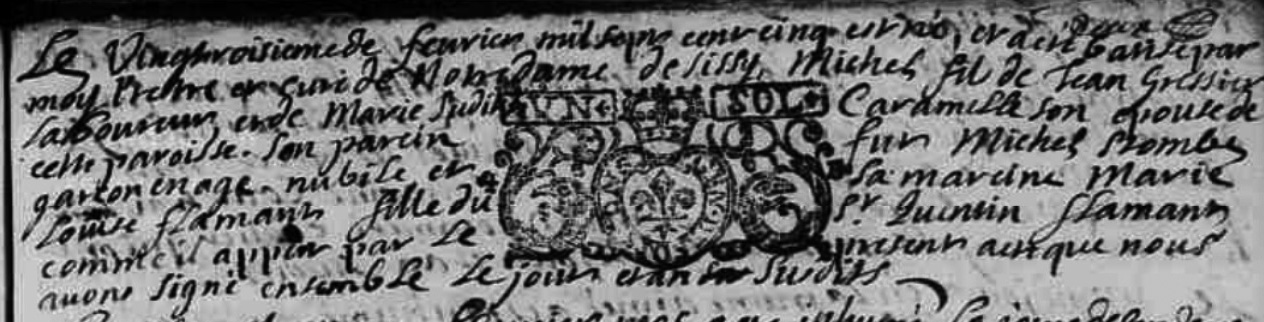 Le Vingtroisieme de fevrier mil sept cent cinq est né, et a été batisé par
moy Prettre et curé de Notre dame de Sissy, Michel fil de Jean Gressier
laboureur et de Marie Judith UN SOL Caramelle son epouse de
cette paroisse. Son parein fut Michel
garcon en age nubile et sa mareine Marie
Louise flamant fille du Sr Quentin flamant
comme il appert par le present acte que nous
avons signé ensemble le jour et an susdits